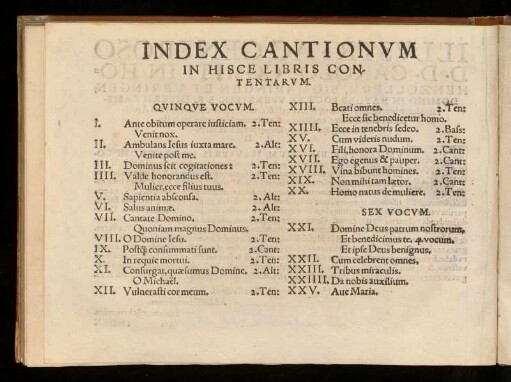 INDEX CANTIONVM
IN HISCE LIBRIS CON-
TENTARVM.
QVINQVE VOCVM.
I. Ante obitum operare iusticiam. 2. Ten:
Venit nox.
II. Ambulans Iesus iuxta mare. 2. Alt:
Venite post me.
III. Dominus scit cogitationes: 2. Ten:
IIII. Valde honorandus est. 2. Ten:
Mulier, ecce filius tuus.
V. Sapientia absconsa. 2. Alt:
VI. Salus animæ. 2. Alt:
VII. Cantate Domino. 2. Ten:
Quoniam magnus Dominus.
VIII. O Domine Iesu. 2. Ten:
IX. Postq̃ consummati sunt. 2. Cant:
X. In requie mortui. 2. Ten:
XI. Consurgat, quæsumus Domine. 2. Alt:
O Michaël.
XII. Vulnerasti cor meum. 2. Ten:
XIII. Beati omnes. 2. Ten:
Ecce sic benedicetur homo.
XIIII. Ecce in tenebris sedeo. 2. Bass:
XV. Cum videris nudum. 2. Ten:
XVI. Fili, honora Dominum. 2. Cant:
XVII. Ego egenus & pauper. 2. Cant:
XVIII. Vina bibunt homines. 2. Ten:
XIX. Non mihi tam lætor. 2. Cant:
XX. Homo natus de muliere. 2. Ten:
SEX VOCVM.
XXI. Domine Deus patrum nostrorum.
Et benedicimus te. 4. vocum.
Et ipse Deus benignus.
XXII. Cum celebrent omnes.
XXIII. Tribus miraculis.
XXIIII. Da nobis auxilium.
XXV. Aue Maria.